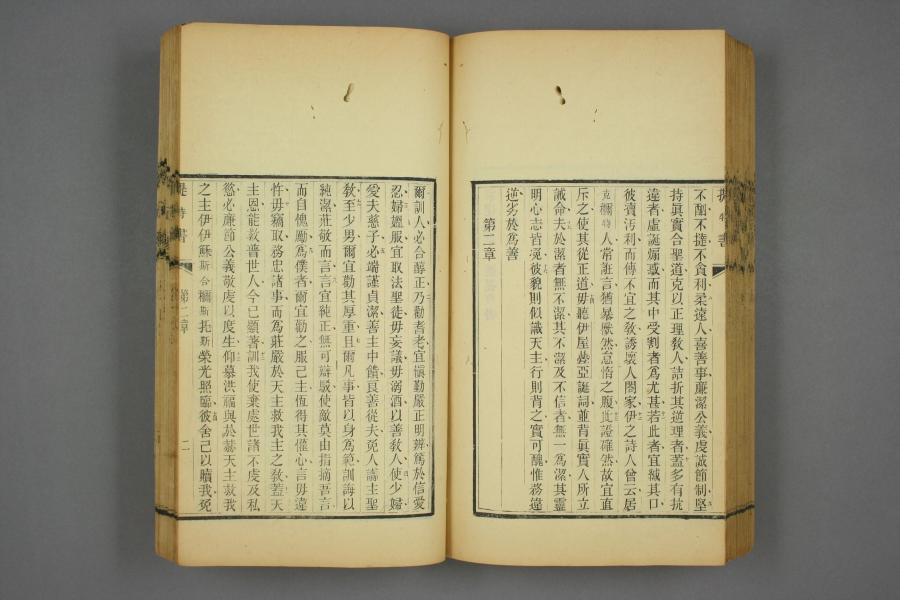 不鬭不撻不貪利柔遠人喜善事廉潔公義虔誠節制堅
持眞實合聖道克以正理敎人詰折其逆理者蓋多有抗
違者虛誕煽惑而其中受割者爲尤甚若此者宜緘其口
彼賣污利而傳不宜之敎誘壞人闔家伊之詩人曾云居
克爾特人常誑言猶暴獸然怠惰之腹此證確然故宜直
斥之使其從正道毋聽伊屋叅亞誕詞並背眞實人所立
誡命夫於潔者無不潔其不潔及不信者無一爲潔其靈
明心志皆浼彼貌則似識天主行則背之實可醜惟務違
逆劣於爲善
第二章
爾訓人必合醇正乃勸耆老宜愼勤嚴正明辨篤於信愛
忍婦嫗服宜取法聖徒毋妄議毋溺酒以善敎人使少婦
愛夫慈子必端謹貞潔善主中饋良善從夫免人謗主聖
敎至少男爾宜勸其厚重且爾凡事皆以身爲範訓誨以
純潔莊敬而言言宜純正無可辯駁使敵莫由指摘吾言
而自愧勵爲僕者爾宜勸之服己主恆得其懽心言毋違
忤毋竊取務忠諸事而爲莊嚴於天主救我主之敎蓋天
主恩能救普世人今已顯著訓我使棄虔世諸不虔及私
慾必廉節公義敬虔以度生仰慕洪福與於㷼天主救我
之主伊伊穌斯合爾斯托斯榮光照臨彼舍己以贖我免
提特書
第二章
二